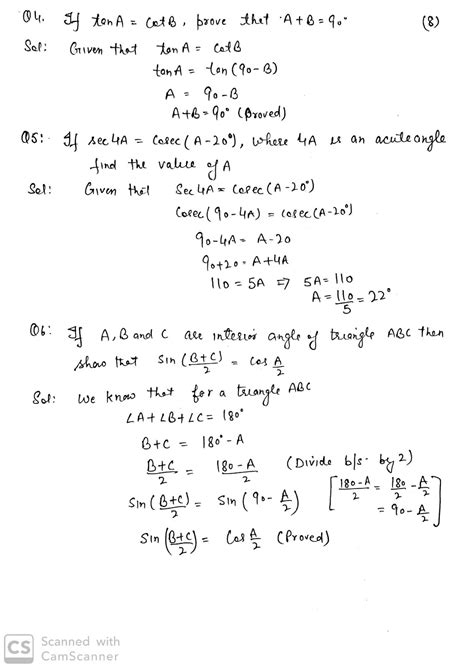 Q4. If tanA = CotB, prove that A+B = 90° (8)
Sol: Given that tanA = CotB
tanA = tan(90-B)
A = 90-B
A+B = 90° (Proved)
Q5: If sec4A = Cosec(A-20°), where 4A is an acute angle
find the value of A
Sol: Given that Sec4A = Cosec(A-20°)
Cosec(90-4A) = Cosec(A-20°)
90-4A = A-20
90+20 = A+4A
110 = 5A ⇒ 5A = 110
A = 110/5 = 22°
Q6: If A, B and C are interior angle of triangle ABC then
show that Sin (B+C)/2 = Cos A/2
Sol: We know that for a triangle ABC
∠A+∠B+∠C = 180°
B+C = 180°-A
(B+C)/2 = (180-A)/2 (Divide b/s. by 2)
Sin (B+C)/2 = Sin (90- A/2) [(180-A)/2 = 180/2 - A/2
= 90- A/2]
Sin (B+C)/2 = Cos A/2 (Proved)
CS Scanned with
CamScanner